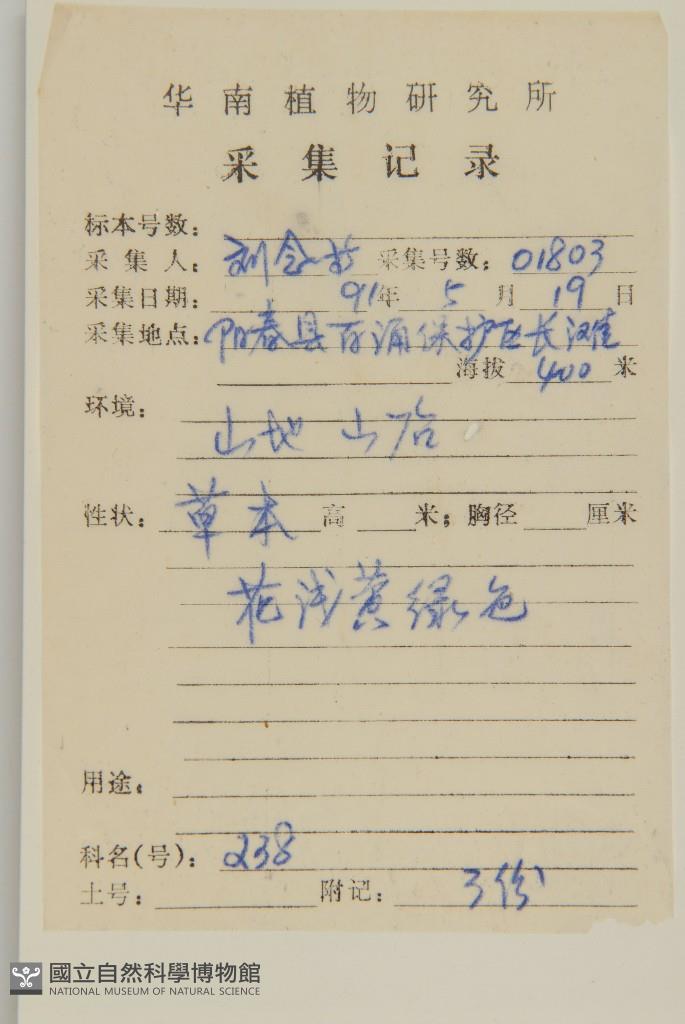 华南植物研究所
采集记录
标本号数:
采集人: 刘念 采集号数: 01803
采集日期: 91年 5月 19日
采集地点: 阳春县百涌保护区长滩
海拔 400 米
环境:
山地 山谷
性状: 草本 高 米; 胸径 厘米
花浅黄绿色
用途:
科名(号): 238
土号: 附记: 3份
國立自然科學博物館
NATIONAL MUSEUM OF NATURAL SCIENCE